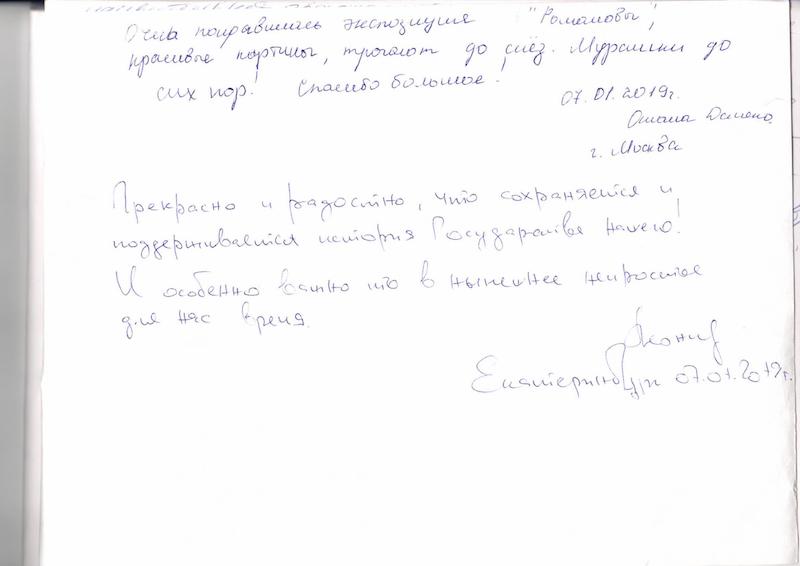 Очень понравилась экспозиция "Романовы",
красивые картины, трогают до слёз. Мурашки до
сих пор! Спасибо большое!
07.01.2019г.
Оксана
г. Москва
Прекрасно и радостно, что сохраняется и
поддерживается история Государства нашего!
И особенно важно это в нынешнее непростое
для нас время.
Екатеринбург 07.01.2019г.